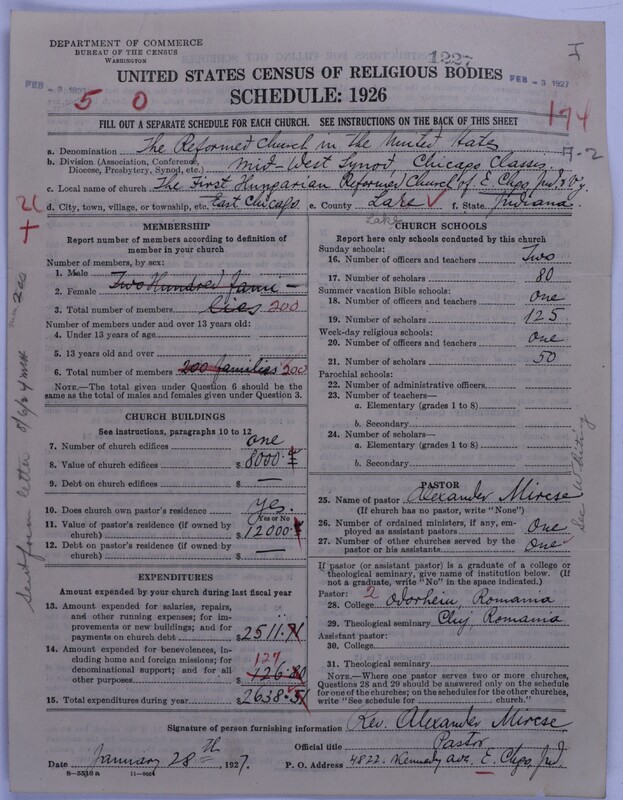 DEPARTMENT OF COMMERCE
BUREAU OF THE CENSUS
WASHINGTON
1227
I
FEB - 3 1927
UNITED STATES CENSUS OF RELIGIOUS BODIES
FEB - 3 1927
5 0
SCHEDULE: 1926
174
FILL OUT A SEPARATE SCHEDULE FOR EACH CHURCH. SEE INSTRUCTIONS ON THE BACK OF THIS SHEET
a. Denomination The Reformed Church in the United States
b. Division (Association, Conference, Diocese, Presbytery, Synod, etc.) Mid-West Synod Chicago Classis
c. Local name of church The First Hungarian Reformed Church of E. Chgo, Ind.
d. City, town, village, or township, etc. East Chicago e. County Lake f. State Indiana
Lake
MEMBERSHIP
Report number of members according to definition of
member in your church
Number of members, by sex:
1. Male
2. Female Two Hundred fami-
3. Total number of members lies 200
Number of members under and over 13 years old:
4. Under 13 years of age
5. 13 years old and over
6. Total number of members 200 families 200
NOTE.—The total given under Question 6 should be the
same as the total of males and females given under Question 3.
CHURCH BUILDINGS
See instructions, paragraphs 10 to 12
7. Number of church edifices one
8. Value of church edifices $ 8000
9. Debt on church edifices $ —
10. Does church own pastor's residence yes.
Yes or No
11. Value of pastor's residence (if owned by
church) $ 12000
12. Debt on pastor's residence (if owned by
church) $ —
EXPENDITURES
Amount expended by your church during last fiscal year
13. Amount expended for salaries, repairs,
and other running expenses; for im-
provements or new buildings; and for
payments on church debt $ 2511.71
14. Amount expended for benevolences, in-
cluding home and foreign missions; for
denominational support; and for all
other purposes $ 126.80
127
15. Total expenditures during year $ 2638.51
CHURCH SCHOOLS
Report here only schools conducted by this church
Sunday schools:
16. Number of officers and teachers Two
17. Number of scholars 80
Summer vacation Bible schools:
18. Number of officers and teachers one
19. Number of scholars 125
Week-day religious schools:
20. Number of officers and teachers one
21. Number of scholars 50
Parochial schools:
22. Number of administrative officers
23. Number of teachers—
a. Elementary (grades 1 to 8)
b. Secondary
24. Number of scholars—
a. Elementary (grades 1 to 8)
b. Secondary
PASTOR
25. Name of pastor Alexander Mircse
(If church has no pastor, write "None")
26. Number of ordained ministers, if any, em-
ployed as assistant pastors One
27. Number of other churches served by the
pastor or his assistants One
If pastor (or assistant pastor) is a graduate of a college or
theological seminary, give name of institution below. (If
not a graduate, write "No" in the space indicated.)
Pastor: 2
28. College Odorheiu, Romania
29. Theological seminary Cluj, Romania
Assistant pastor:
30. College
31. Theological seminary
NOTE.—Where one pastor serves two or more churches,
Questions 28 and 29 should be answered only on the schedule
for one of the churches; on the schedules for the other churches,
write "See schedule for church."
Signature of person furnishing information Rev. Alexander Mircse
Official title Pastor
Date January 28th, 1927. P. O. Address 4822 Kennedy ave. E. Chgo, Ind.
8-5510 a
See Whiting